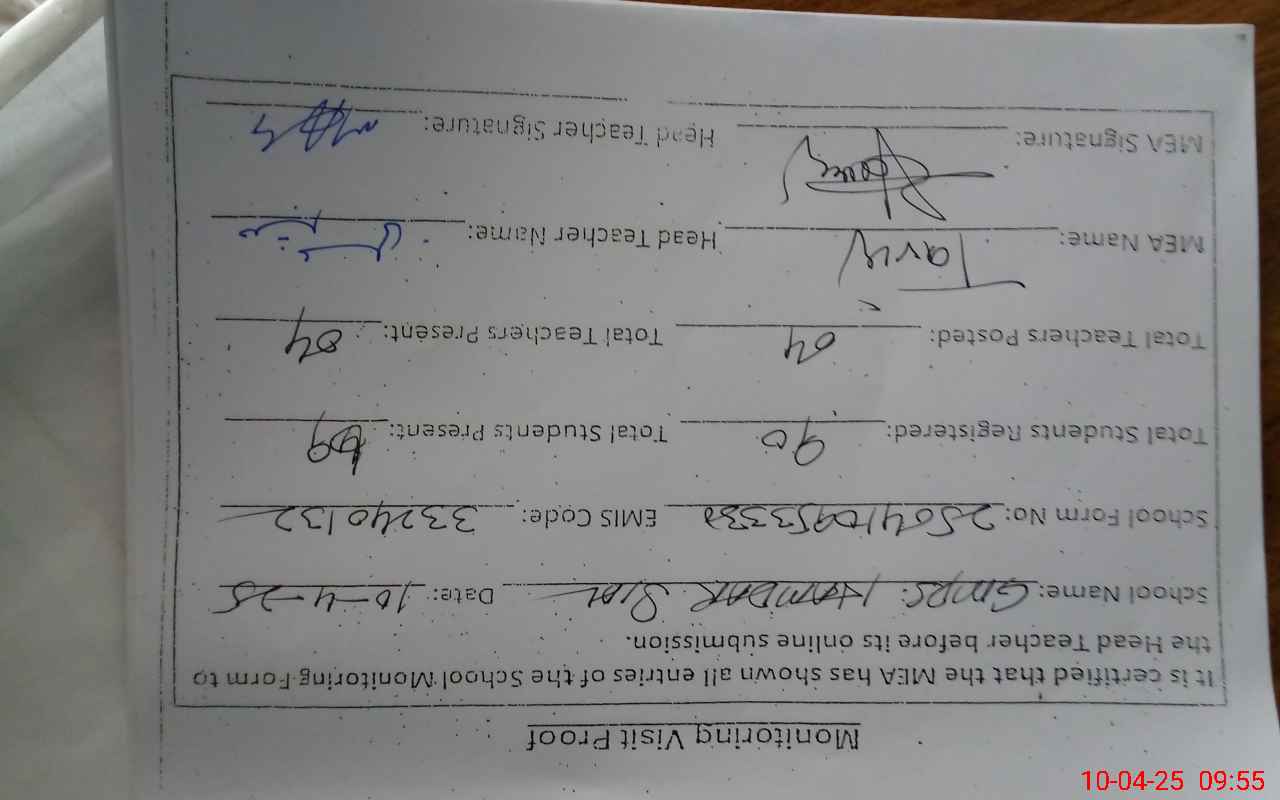 Monitoring Visit Proof
It is certified that the MEA has shown all entries of the School Monitoring Form to
the Head Teacher before its online submission.
School Name: GMPS. HAMDAR SIAL Date: 10-4-25
School Form No: EMIS Code: 33240132
Total Students Registered: 90 Total Students Present: 69
Total Teachers Posted: 04 Total Teachers Present: 04
MEA Name: Head Teacher Name:
MEA Signature: Head Teacher Signature:
10-04-25 09:55